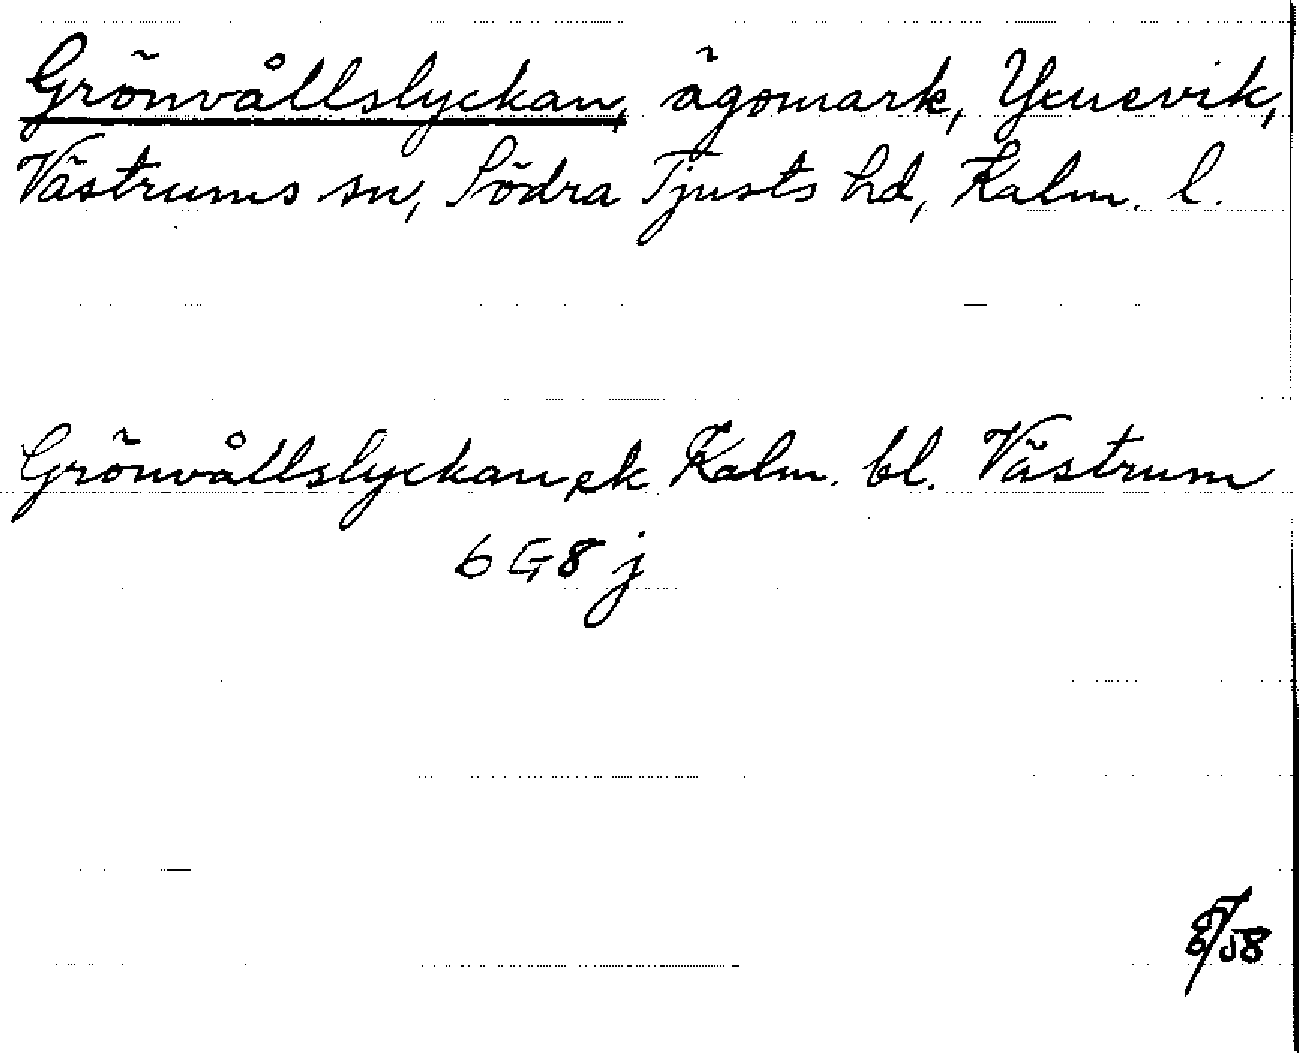 Grönvållslyckan, ägomark, Ycnevik,
Västrums sn, Södra Tjusts hd, Kalm. l.
Grönvållslyckan ek Kalm. bl. Västrum
6 G 8 j